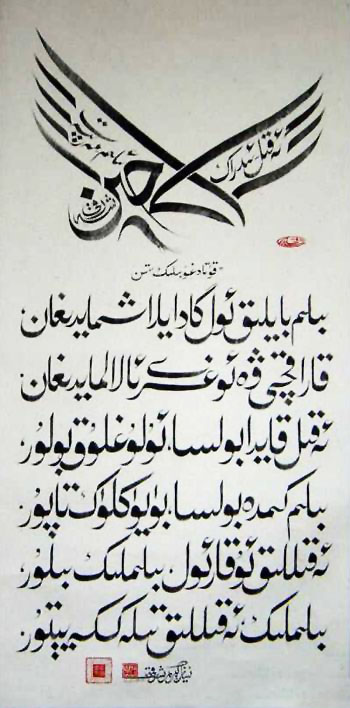 ئەقىل ئىدراك
لاچىن
«قۇتادغۇبىلىك»تىن
بىلىم بايلىق ئول گادايلاشمايدىغان
قاراقچى ۋە ئوغرى ئالالمايدىغان.
ئەقىل قايدا بولسا، ئۇلۇغلۇق بولۇر،
بىلىم كىمدە بولسا، بۈيۈكلۈك تاپۇر.
ئەقىللىق ئۇقار ئول، بىلىملىك بىلۇر،
بىلىملىك ئەقىللىق تىلەككە يېتۇر.